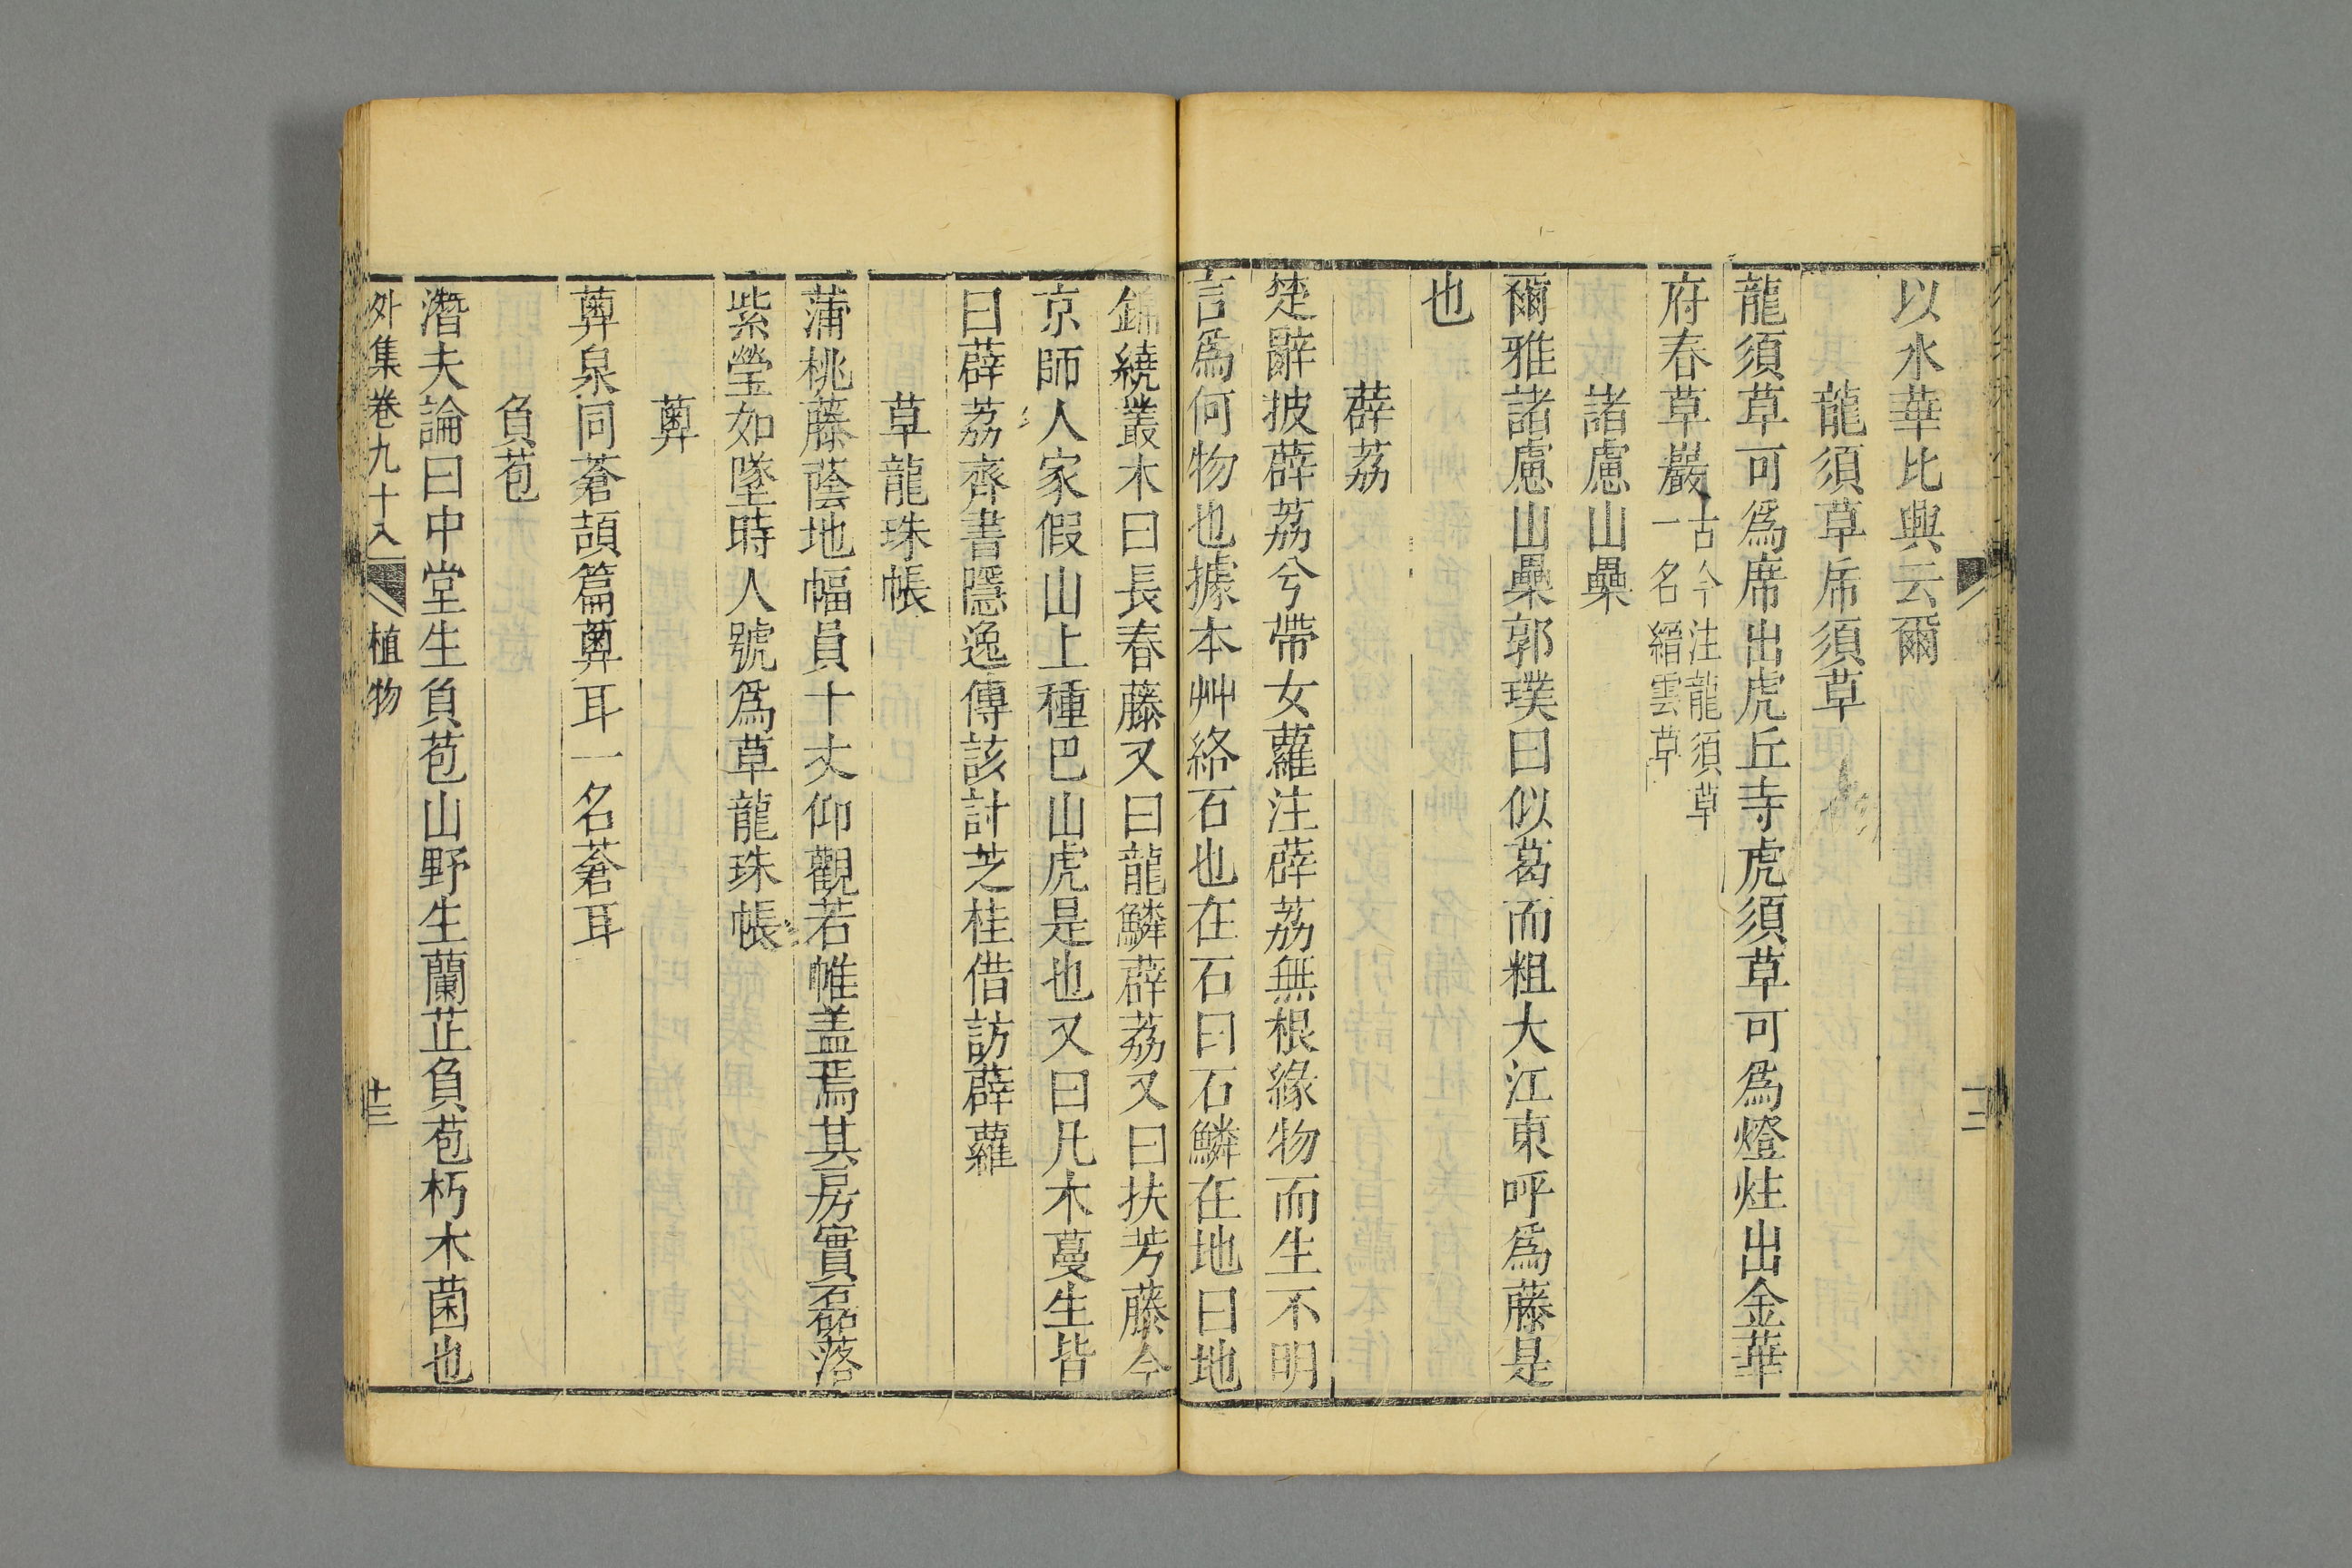 以水華比與云爾
龍須草席須草
龍須草可爲席出虎丘寺虎須草可爲燈炷出金華
府春草巖古今注龍須草
一名縉雲草
諸慮山櫐
爾雅諸慮山櫐郭璞曰似葛而粗大江東呼爲藤是
也
薜荔
楚辭披薜荔兮帶女蘿注薜荔無根緣物而生不明
言爲何物也據本艸絡石也在石曰石鱗在地曰地
錦繞叢木曰長春藤又曰龍鱗薜荔又曰扶芳藤今
京師人家假山上種巴山虎是也又曰凡木蔓生皆
曰薜荔齊書隱逸傳該討芝桂借訪薜蘿
草龍珠帳
蒲桃藤蔭地幅員十丈仰觀若帷盖焉其房實磊落
紫瑩如墜時人號爲草龍珠帳
薭
薭泉同蒼頡篇薭耳一名蒼耳
負苞
潛夫論曰中堂生負苞山野生蘭芷負苞朽木菌也
外集卷九十八
植物
十三
十二